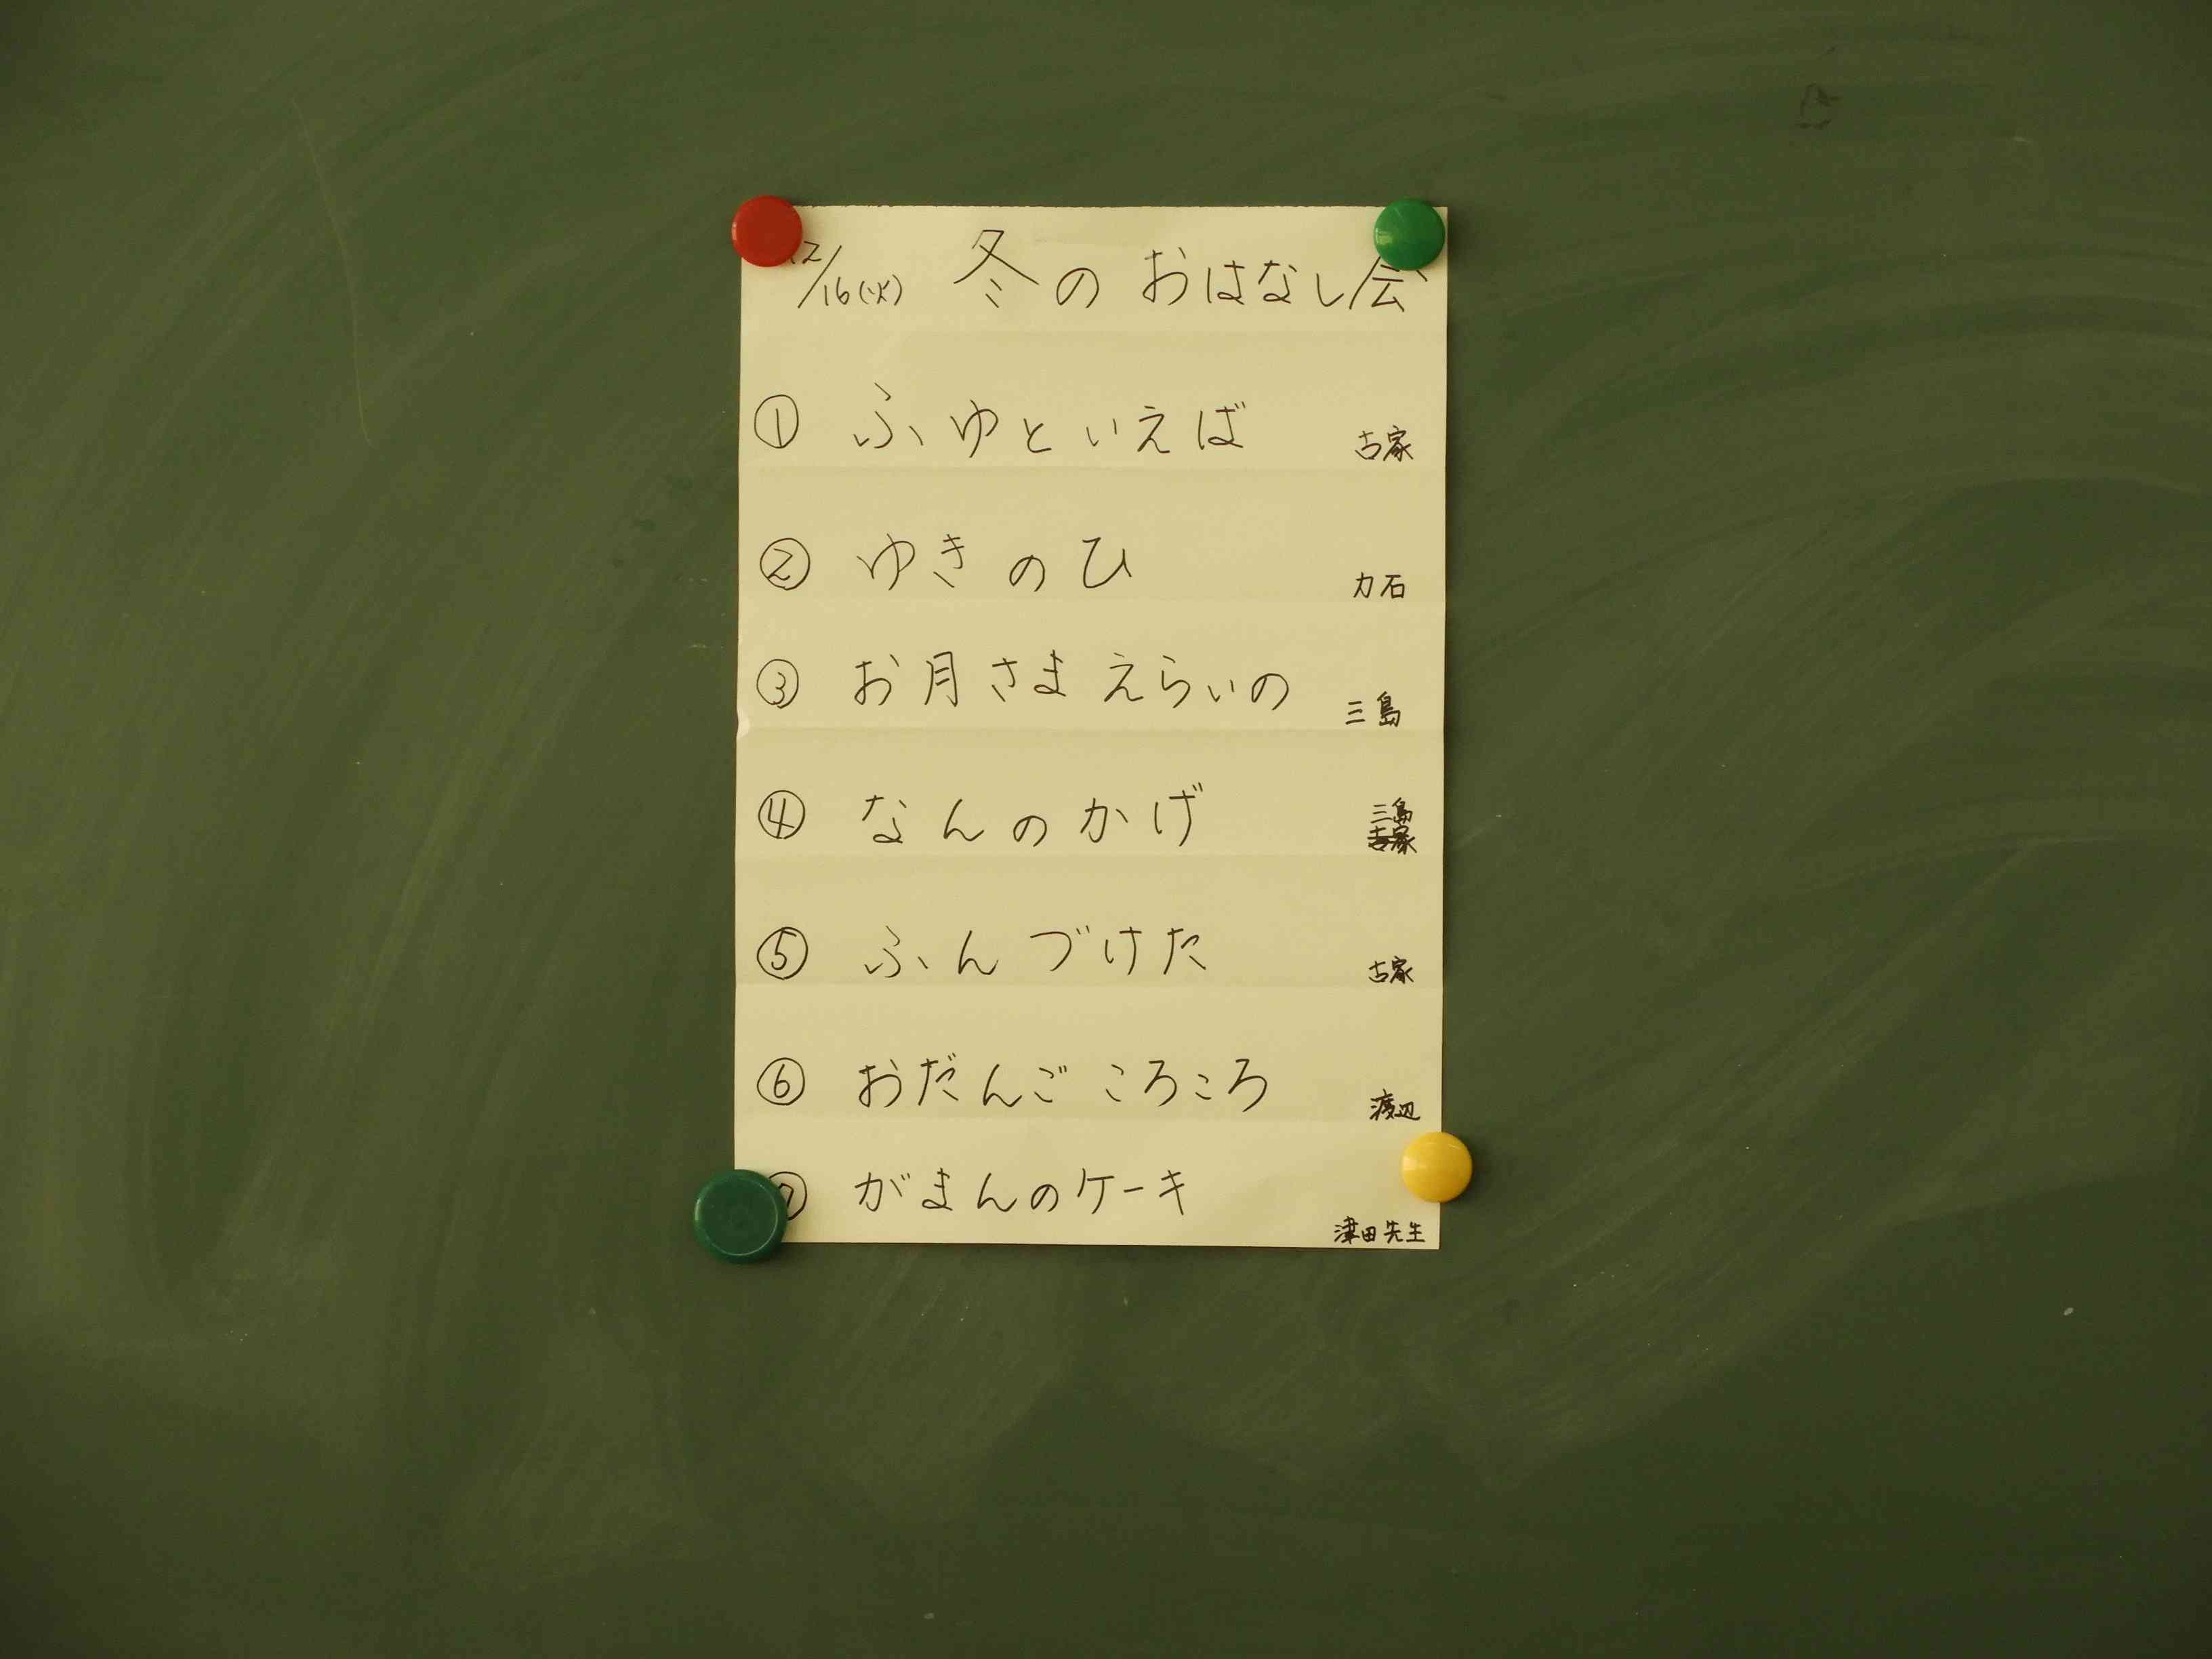 12/16(火) 冬の おはなし会
① ふゆといえば 古家
② ゆきのひ 力石
③ お月さま えらいの 三島
④ なんのかげ 三島
古家
⑤ ふんづけた 古家
⑥ おだんご ころころ 渡辺
⑦ がまんのケーキ
津田先生